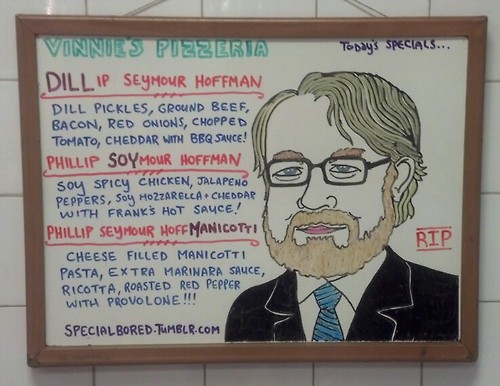 VINNIE'S PIZZERIA
TODAY'S SPECIALS...
DILLIP SEYMOUR HOFFMAN
DILL PICKLES, GROUND BEEF,
BACON, RED ONIONS, CHOPPED
TOMATO, CHEDDAR WITH BBQ SAUCE!
PHILLIP SOYMOUR HOFFMAN
SOY SPICY CHICKEN, JALAPENO
PEPPERS, SOY MOZZARELLA + CHEDDAR
WITH FRANK'S HOT SAUCE!
PHILLIP SEYMOUR HOFFMANICOTTI
CHEESE FILLED MANICOTTI
PASTA, EXTRA MARINARA SAUCE,
RICOTTA, ROASTED RED PEPPER
WITH PROVOLONE!!!
RIP
SPECIALBORED.TUMBLR.COM